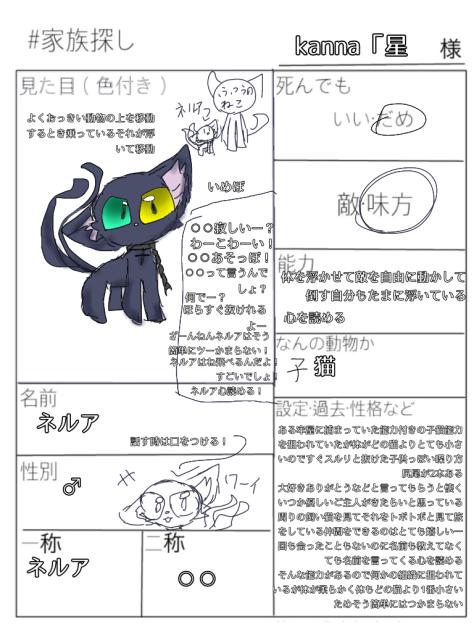 #家族探し
kanna「星 様
見た目(色付き)
よくおっきい動物の上を移動
するとき乗っているそれが浮
いて移動
ネルア
ふつうの
ねこ
いめぼ
○○寂しいー?
わーこわーい!
○○あそっぼ!
○○って言うんで
しょ?
何でー?
ほらすぐ抜けれる
よー
ざーんねんネルアはそう
簡単にツーかまらない!
ネルアはね飛べるんだよ!
すごいでしょ!
ネルア心読める!
死んでも
いい・だめ
敵・味方
能力
体を浮かせて敵を自由に動かして
倒す自分もたまに浮いている
心を読める
なんの動物か
子猫
名前
ネルア
話す時は口をつける!
性別
♂
ワーイ
一称
ネルア
二称
○○
設定・過去・性格など
ある牢屋に捕まっていた能力付きの子猫能力
を狙われていたが体がどの猫よりとても小さ
いのですぐスルリと抜けた子供っぽい喋り方
尻尾が2本ある
大好きありがとうなどと言ってもらうと懐く
いつか優しいご主人がきたらいと思っている
周りの飼い猫を見てそれをトボトボと見て旅
をしている仲間をできるのはとても嬉しい一
回も会ったこともないのに名前も教えてなく
ても名前を言ってくる心を読める
そんな能力があるので何かの組織に狙われて
いるが体が柔らかく体もどの猫より1番小さい
ためそう簡単にはつかまらない